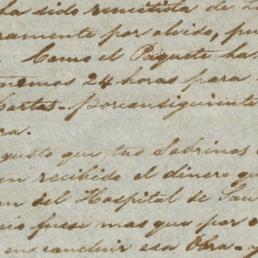 ha sido remitista de
ramente por olvido, pu
Como el Paquete ha
nemos 24 horas para
partas - porconsiguiente
ra.
gusto que tus Sobrinos
on recibido el dinero qu
n del Hospital de San
fuese mas que por
concluir esa Obra - y